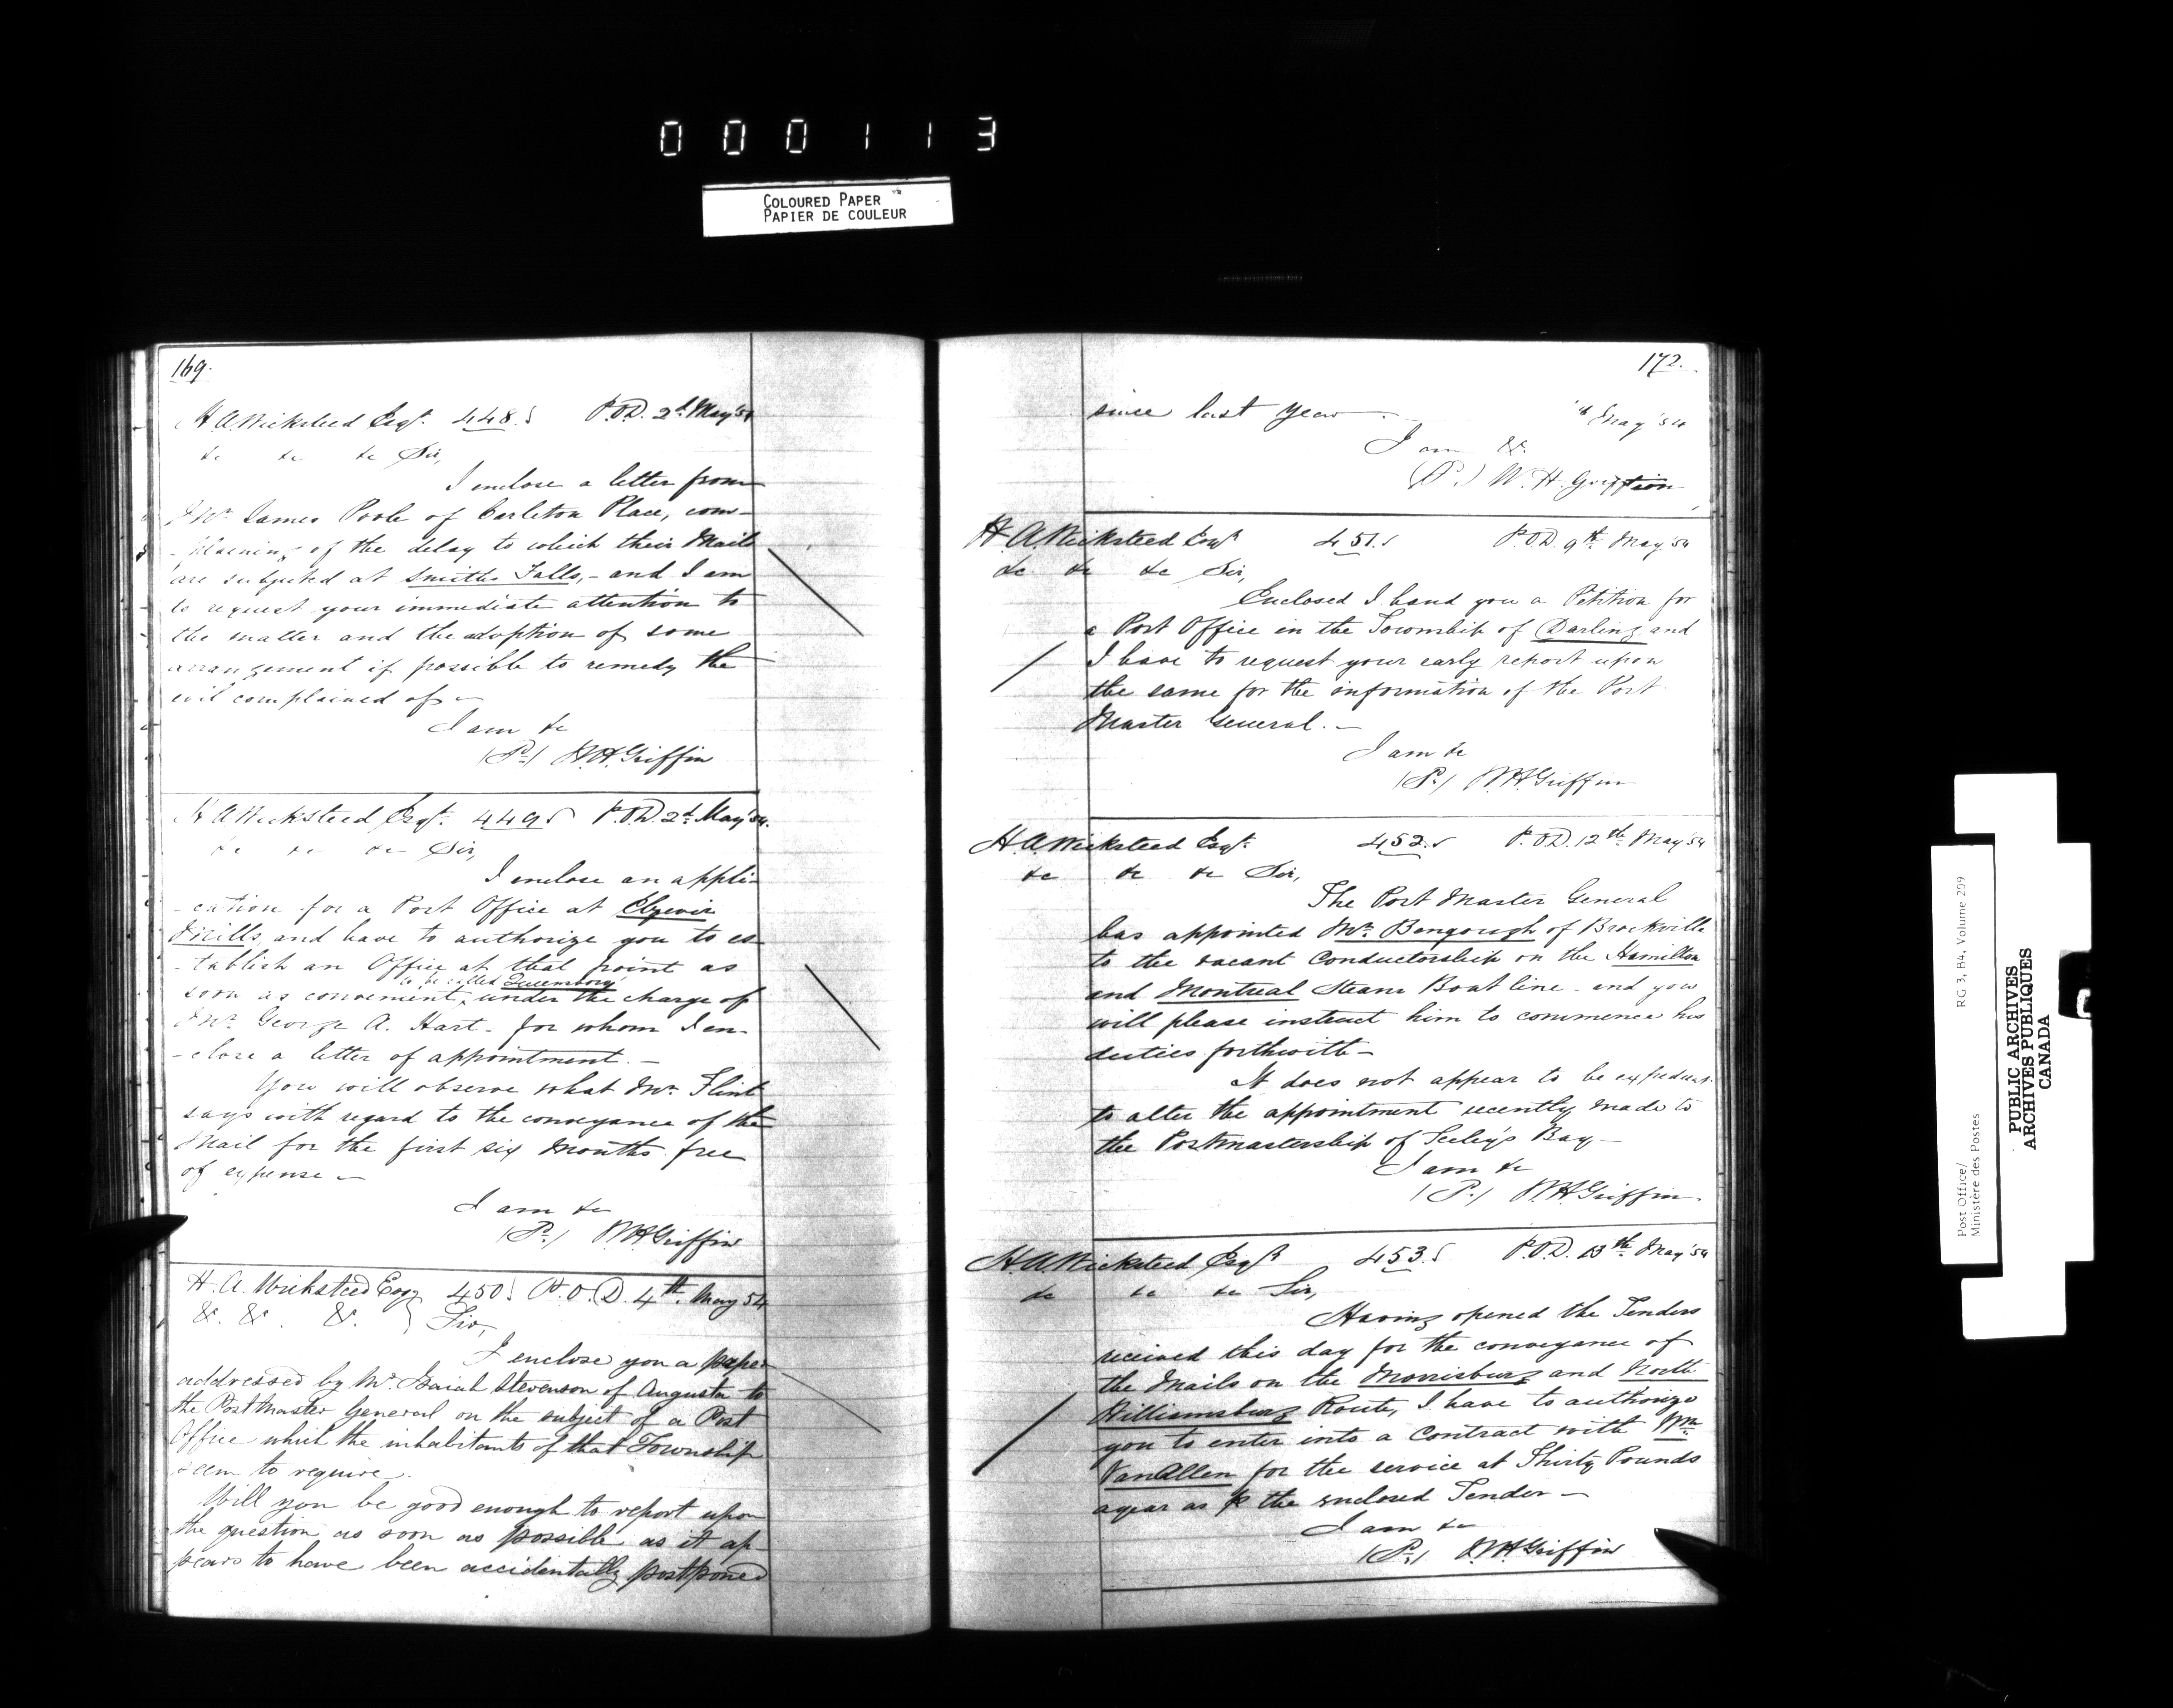 000113
COLOURED PAPER
PAPIER DE COULEUR
169.
H A Wicksteed Esqr. 448. P.O.D. 2d May '54
&c &c &c Sir,
I enclose a letter from
Mr. James Poole of Carleton Place, com-
-plaining of the delay to which their Mails
are subjected at Smiths Falls, - and I am
to request your immediate attention to
the matter and the adoption of some
arrangement if possible to remedy the
evil complained of -
I am &c
(P.) W.H. Griffin
H A Wicksteed Esqr. 449 P.O.D. 2d May '54.
&c &c &c Sir,
I enclose an appli-
-cation for a Post Office at
Mills, and have to authorize you to es-
-tablish an Office at that point as
to be called
soon as convenient, under the charge of
Mr. George A. Hart - for whom I en-
-close a letter of appointment. -
You will observe what Mr. Flint
says with regard to the conveyance of the
Mail for the first six Months free
of expense -
I am &c
(P.) W.H. Griffin
H. A. Wicksteed Esqr 450 P.O.D. 4th. May 54
&c. &c. &c. } Sir,
I enclose you a paper
addressed by Mr. Isaiah Stevenson of Augusta to
the Post Master General on the subject of a Post
Office which the inhabitants of that Township
seem to require.
Will you be good enough to report upon
the question as soon as possible as it ap-
pears to have been accidentally postponed
172.
since last year -
May '54
I am &c.
(P.) W. H. Griffin
H. A. Wicksteed Esqr 451. P.O.D. 9th May '54
&c &c &c Sir,
Enclosed I hand you a Petition for
a Post Office in the Township of Darling and
I have to request your early report upon
the same for the information of the Post
Master General. -
I am &c
(P.) W.H. Griffin
H. A. Wicksteed Esqr. 452. P.O.D. 12th May '54
&c &c &c Sir,
The Post Master General
has appointed Mr. Bengough of Brockville
to the vacant Conductorship on the Hamilton
and Montreal Steam Boat line - and you
will please instruct him to commence his
duties forthwith -
It does not appear to be expedient
to alter the appointment recently made to
the Postmastership of Seeley's Bay -
I am &c
(P.) W.H. Griffin
H. A. Wicksteed Esqr 453. P.O.D. 13th May '54
&c &c &c Sir,
Having opened the Tenders
received this day for the conveyance of
the Mails on the Morrisburg and North
Williamsburg Route, I have to authorize
you to enter into a Contract with Wm.
VanAllen for the service at Thirty Pounds
a year as p the enclosed Tender -
I am &c
(P.) W.H. Griffin
Post Office/
Ministère des Postes
RG 3, B4, Volume 209
PUBLIC ARCHIVES
ARCHIVES PUBLIQUES
CANADA